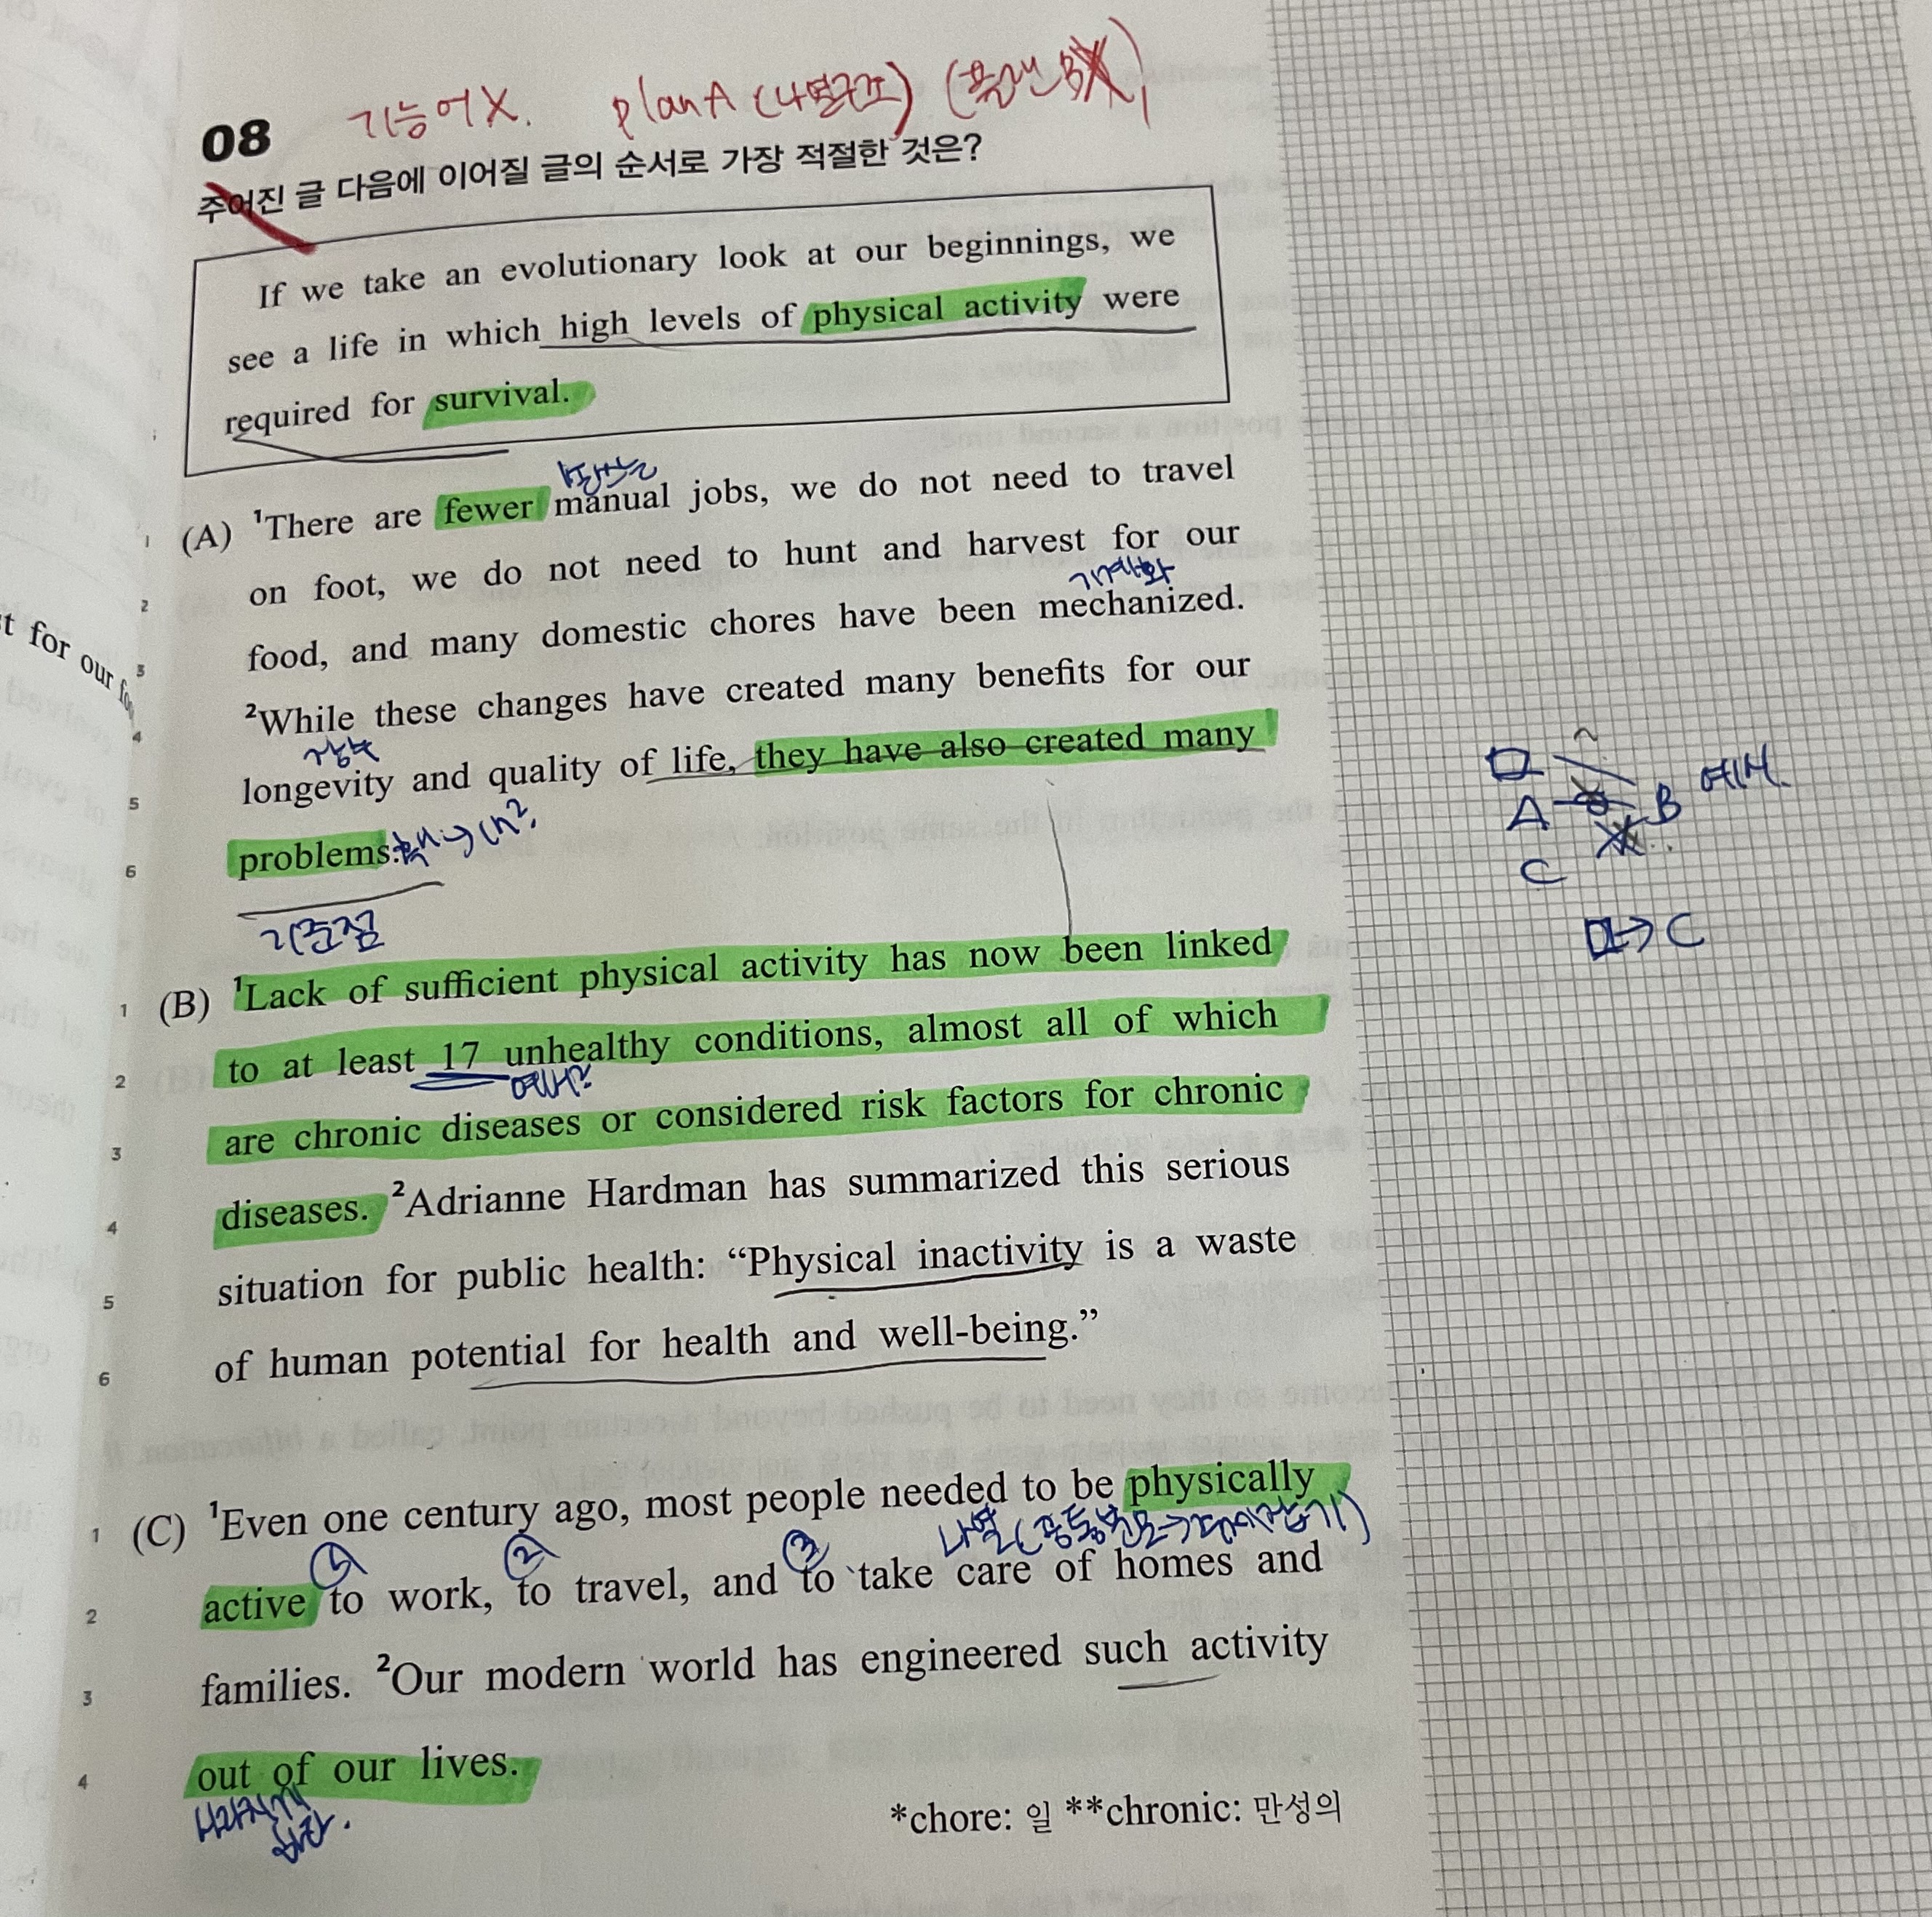 기능어X. plan A (나열구조)
08
주어진 글 다음에 이어질 글의 순서로 가장 적절한 것은?
If we take an evolutionary look at our beginnings, we
see a life in which high levels of physical activity were
required for survival.
1 (A) ¹There are fewer manual jobs, we do not need to travel
2 on foot, we do not need to hunt and harvest for our
기계화
3 food, and many domestic chores have been mechanized.
4 ²While these changes have created many benefits for our
장수
5 longevity and quality of life, they have also created many
6 problems.
기준점
1 (B) ¹Lack of sufficient physical activity has now been linked
2 to at least 17 unhealthy conditions, almost all of which
예시?
3 are chronic diseases or considered risk factors for chronic
4 diseases. ²Adrianne Hardman has summarized this serious
5 situation for public health: “Physical inactivity is a waste
6 of human potential for health and well-being.”
1 (C) ¹Even one century ago, most people needed to be physically
① ② ③
2 active to work, to travel, and to take care of homes and
3 families. ²Our modern world has engineered such activity
4 out of our lives.
사라지게
하다.
*chore: 일 **chronic: 만성의
A B 예시.
C
→ C
t for our